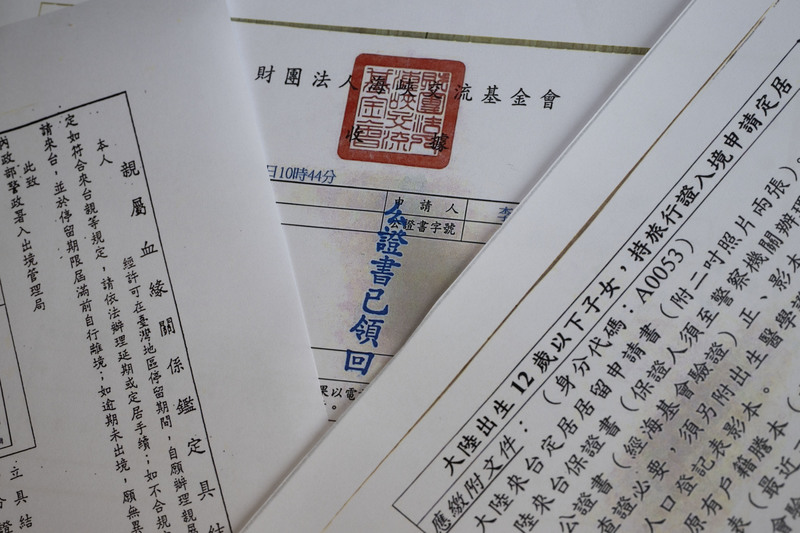 親屬血緣關係鑑定具結
本人
經許可在臺灣地區停留期間，自願辦理親屬
定如符合來台親等規定，請依法辦理延期或定居手續；如不合規定
請來台，並於停留期限屆滿前自行離境；如逾期未出境，願無異
此致
內政部警政署入出境管理局
立具結
財團法人海峽交流基金會
收據
日10時44分
申請人
李
公證書字號
公證書已領回
果以電
大陸出生12歲以下子女，持旅行證入境申請定居
（身分代碼：A0053）
應繳附文件：
大陸來台定居居留申請書（附二吋照片兩張）。
陸來台保證書（保證人須至警察機關辦理
公證書（經海基會驗證）正、影本
查證必要，須另附出生醫學證
人口登記表影本。
原有戶籍謄本（
表（最近